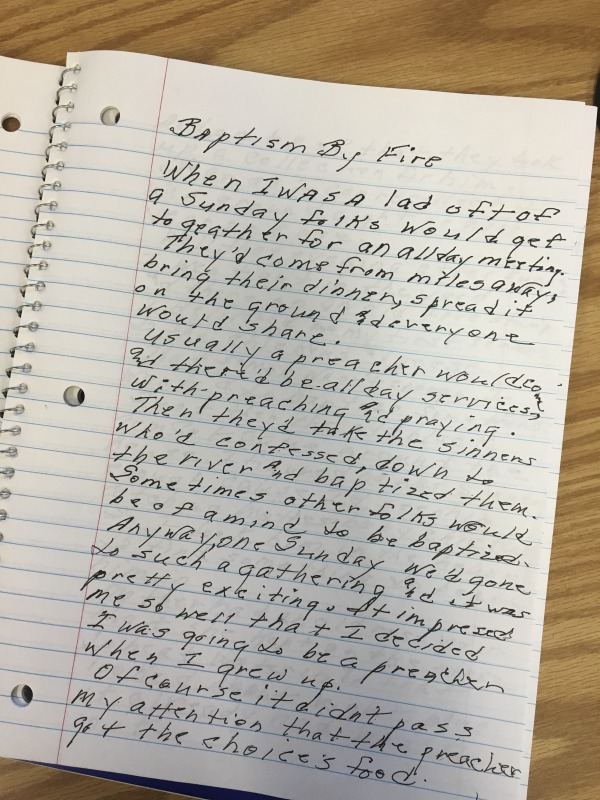 Baptism By Fire
When I WAS A lad oft of
a Sunday folks would get
to geather for an allday meeting.
They'd come from miles away,
bring their dinner, spread it
on the ground & everyone
would share.
Usually a preacher would come
and there'd be all day services,
with preaching and praying.
Then they'd take the sinners
who'd confessed, down to
the river and baptized them.
Some times other folks would
be of a mind to be baptized.
Anyway one Sunday we'd gone
to such a gathering and it was
pretty exciting. It impresed
me so well that I decided
I was going to be a preacher
when I grew up.
Of course it didn't pass
my attention that the preacher
got the choice's food.